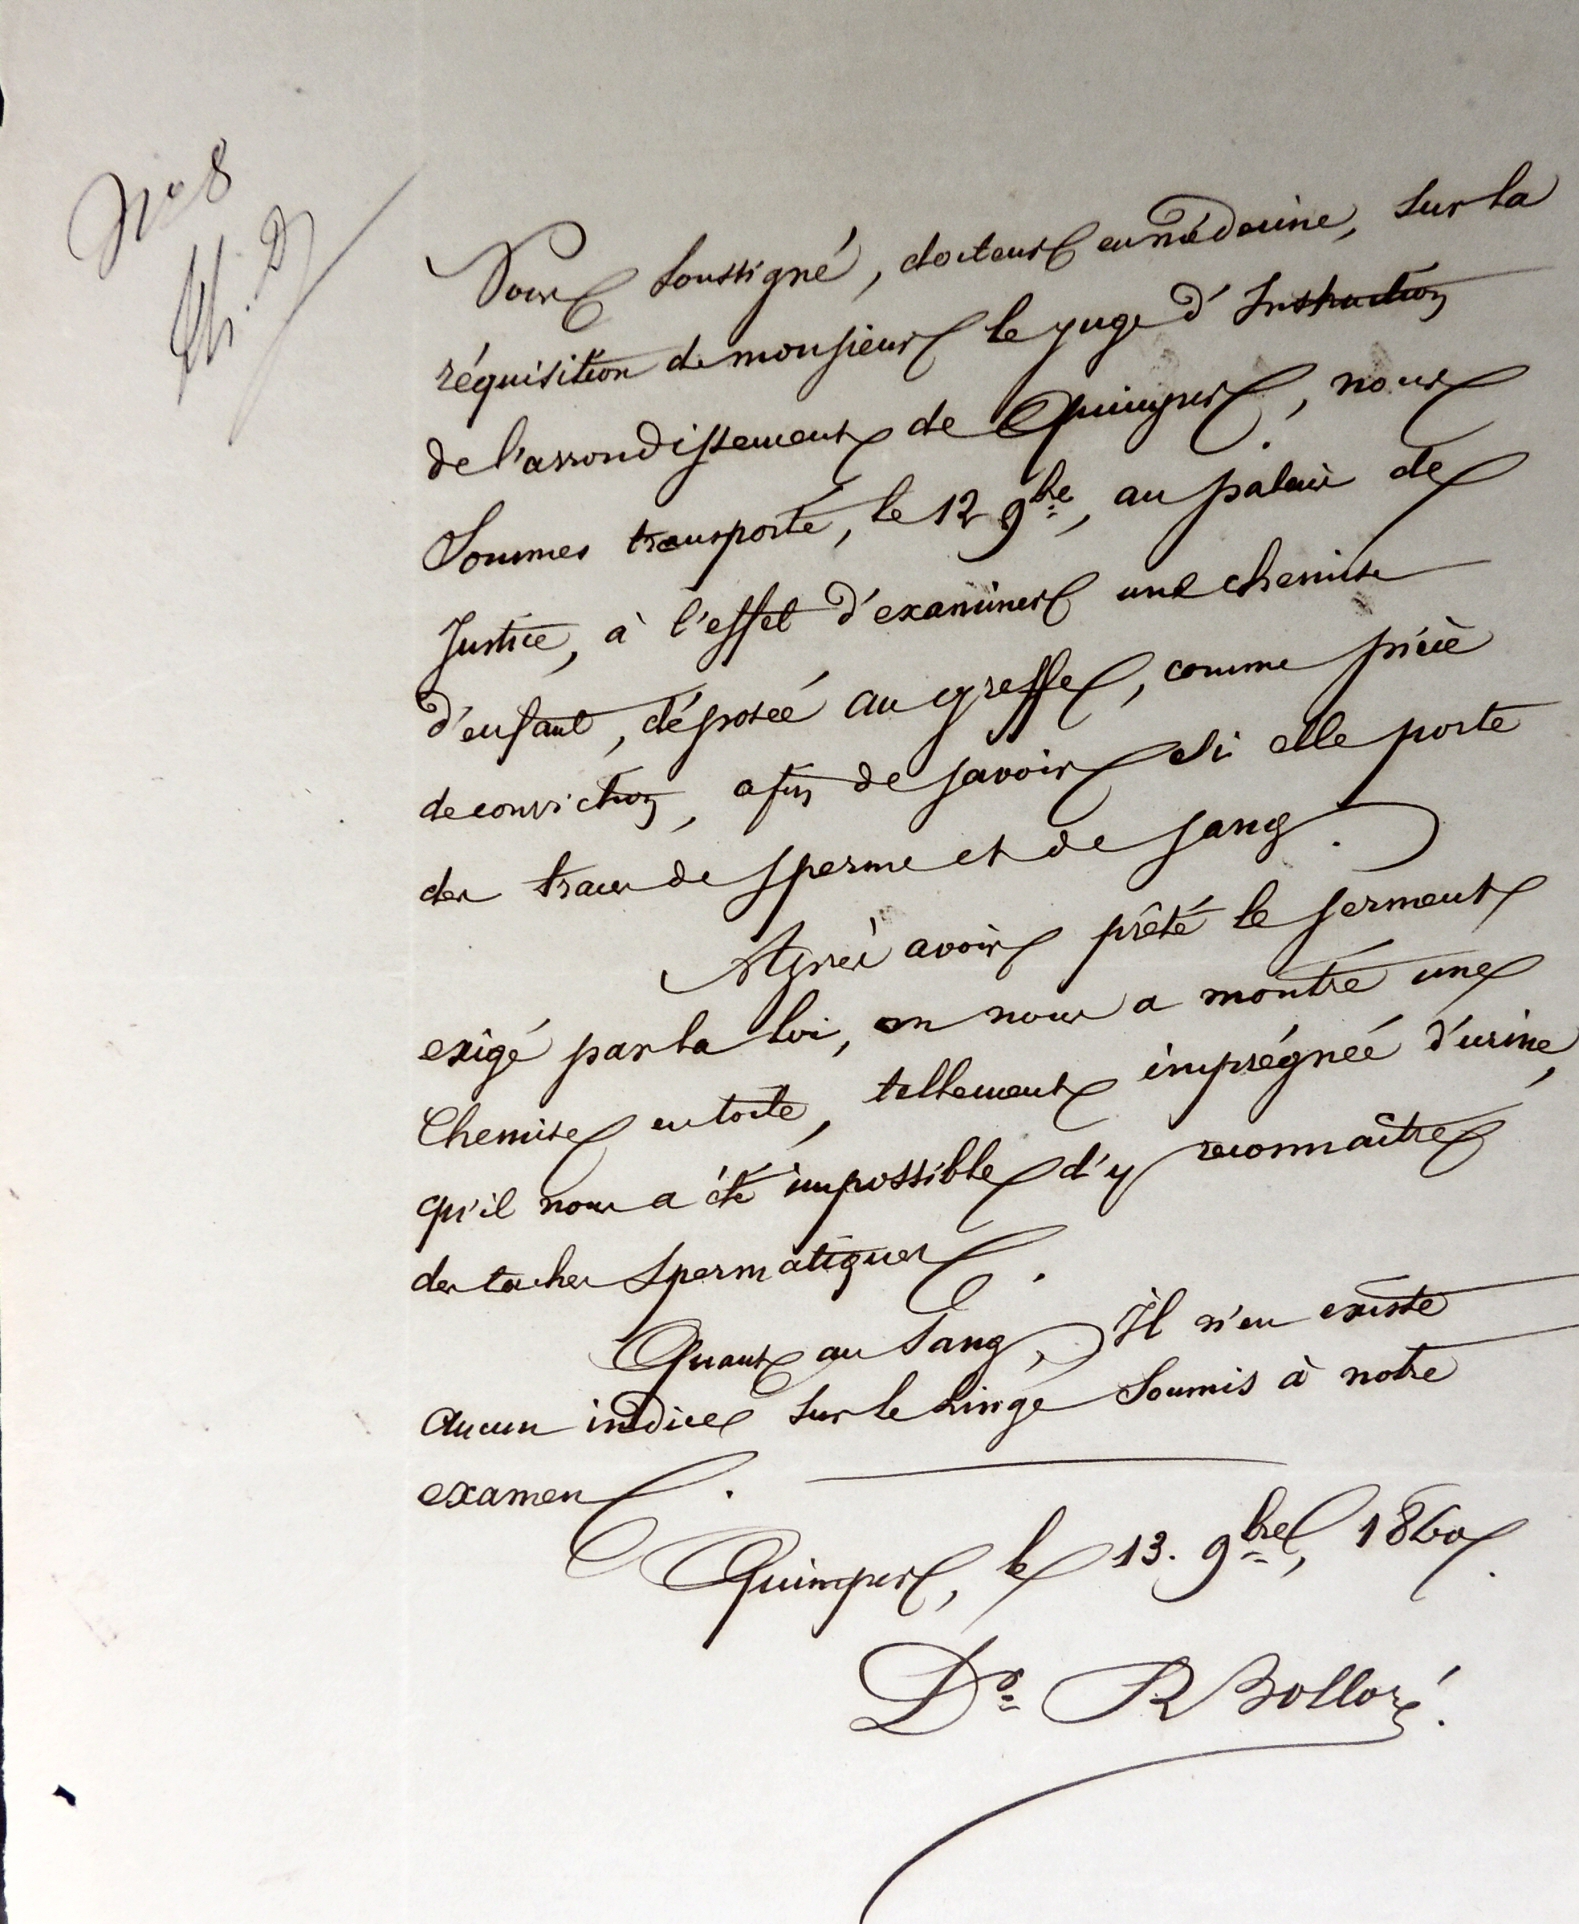 N° 8
Nous soussigné, docteur en médecine, sur la
réquisition de monsieur le juge d'Instruction
de l'arrondissement de Quimper, nous
sommes transporté, le 12 9bre, au palais de
Justice, à l'effet d'examiner une chemise
d'enfant, déposée au greffe, comme pièce
de conviction, afin de savoir si elle porte
des traces de sperme et de sang.
Après avoir prêté le serment
exigé par la loi, on nous a montré une
Chemise en toile, tellement imprégnée d'urine,
qu'il nous a été impossible d'y reconnaître
des taches spermatiques.
Quant au sang, Il n'en existe
aucun indice sur le linge soumis à notre
examen.
Quimper, le 13. 9bre, 1860.
Dr R Bolloré.